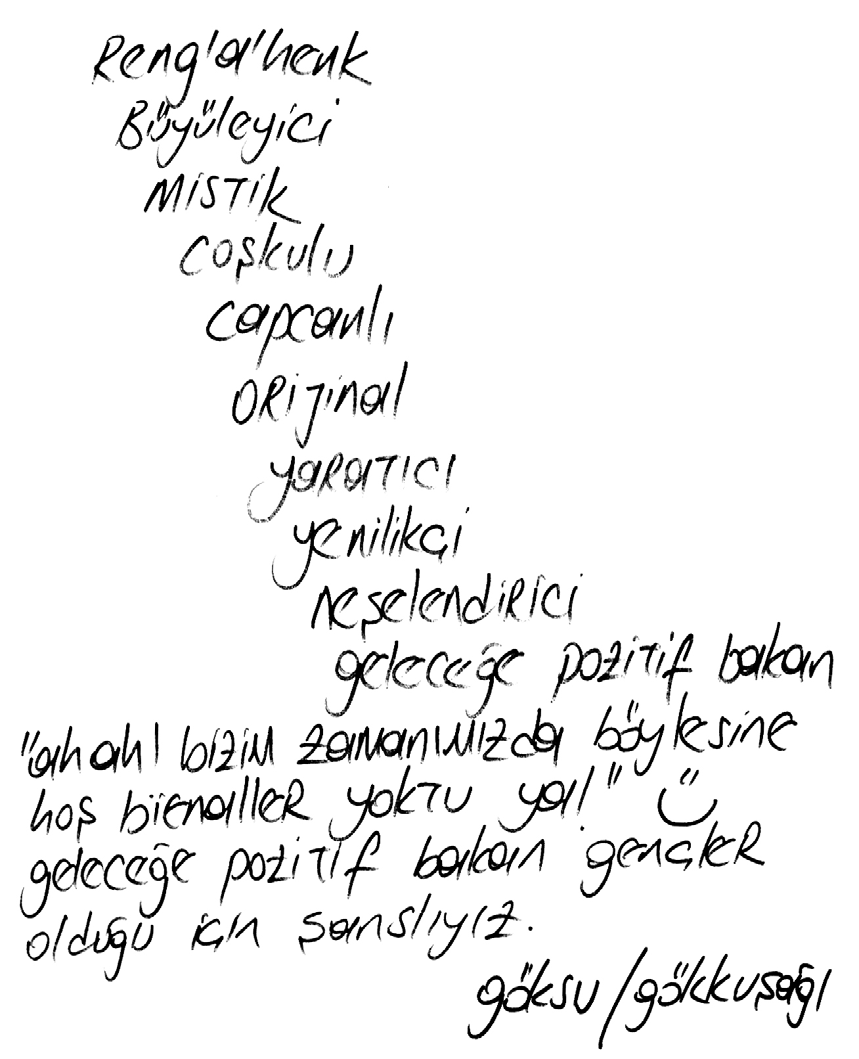 Reng'a'henk
Büyüleyici
Mistik
Coşkulu
Capcanlı
Orijinal
yaratıcı
yenilikçi
neşelendirici
geleceğe pozitif bakan
"ah ah! bizim zamanımızda böylesine
hoş bienaller yoktu ya!" Ü
geleceğe pozitif bakan gençler
olduğu için şanslıyız.
göksu/gökkuşağı